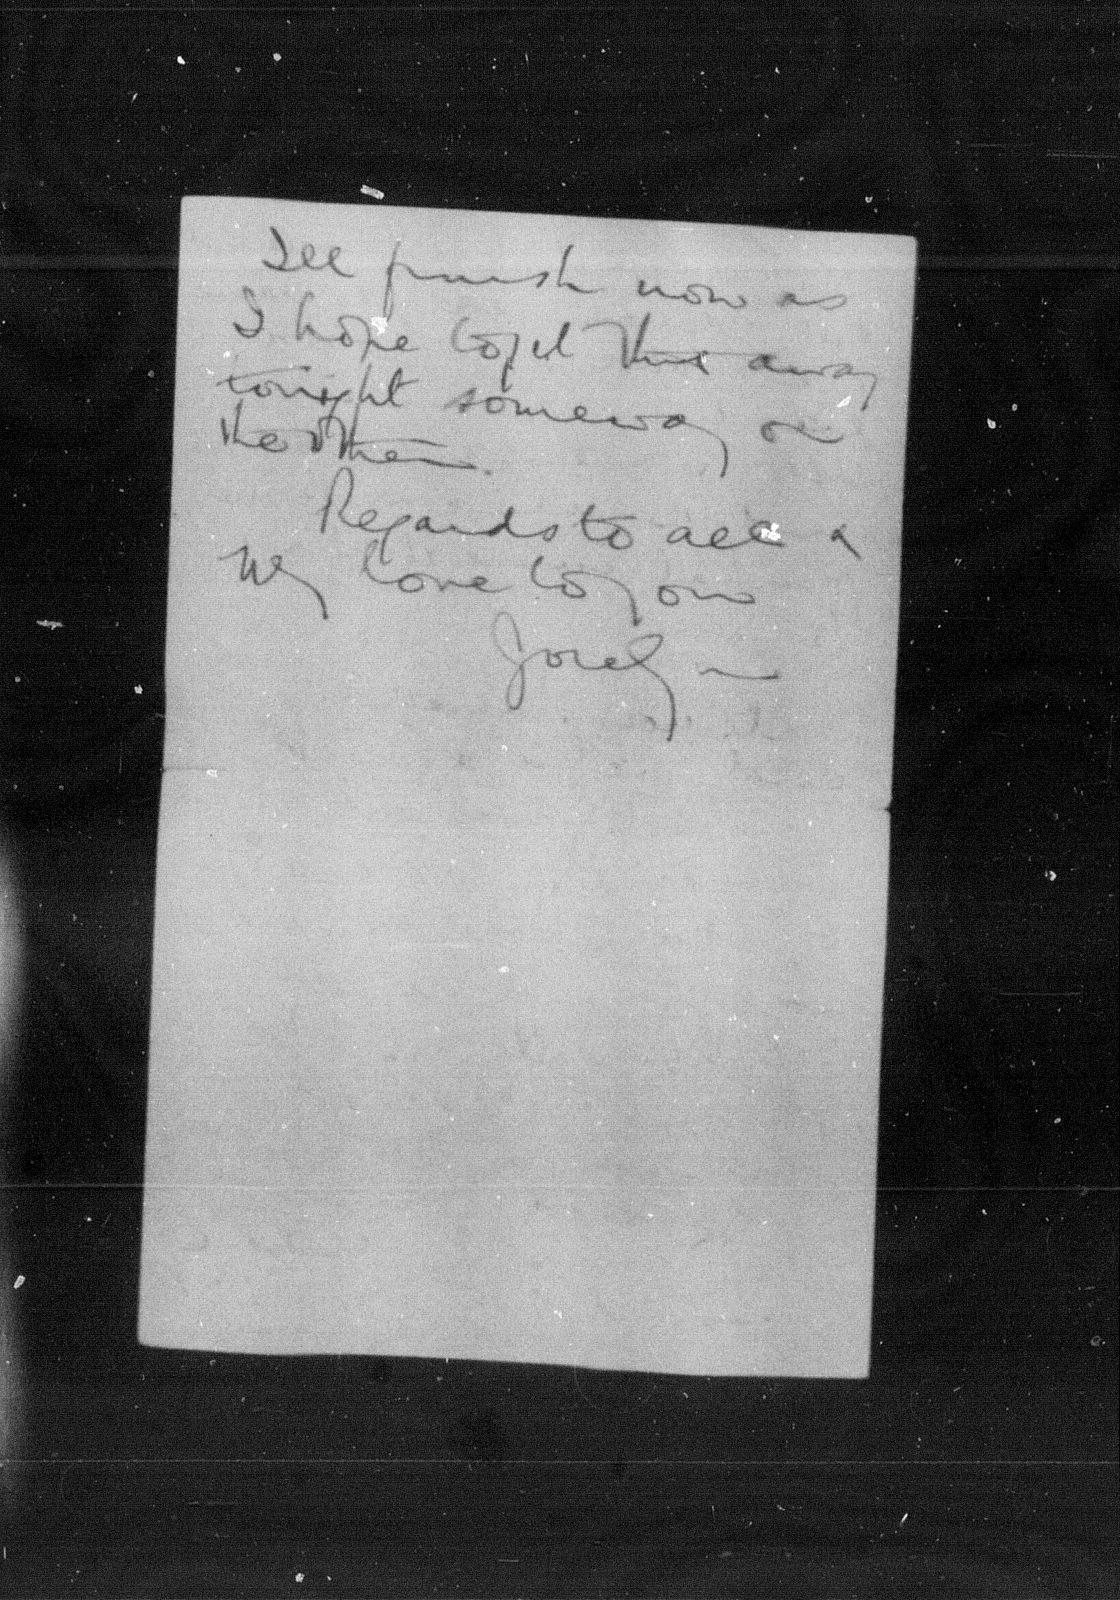 Ill finish now as
I hope to get this away
tonight someway or
the other.
Regards to all &
My love to you
Jocelyn